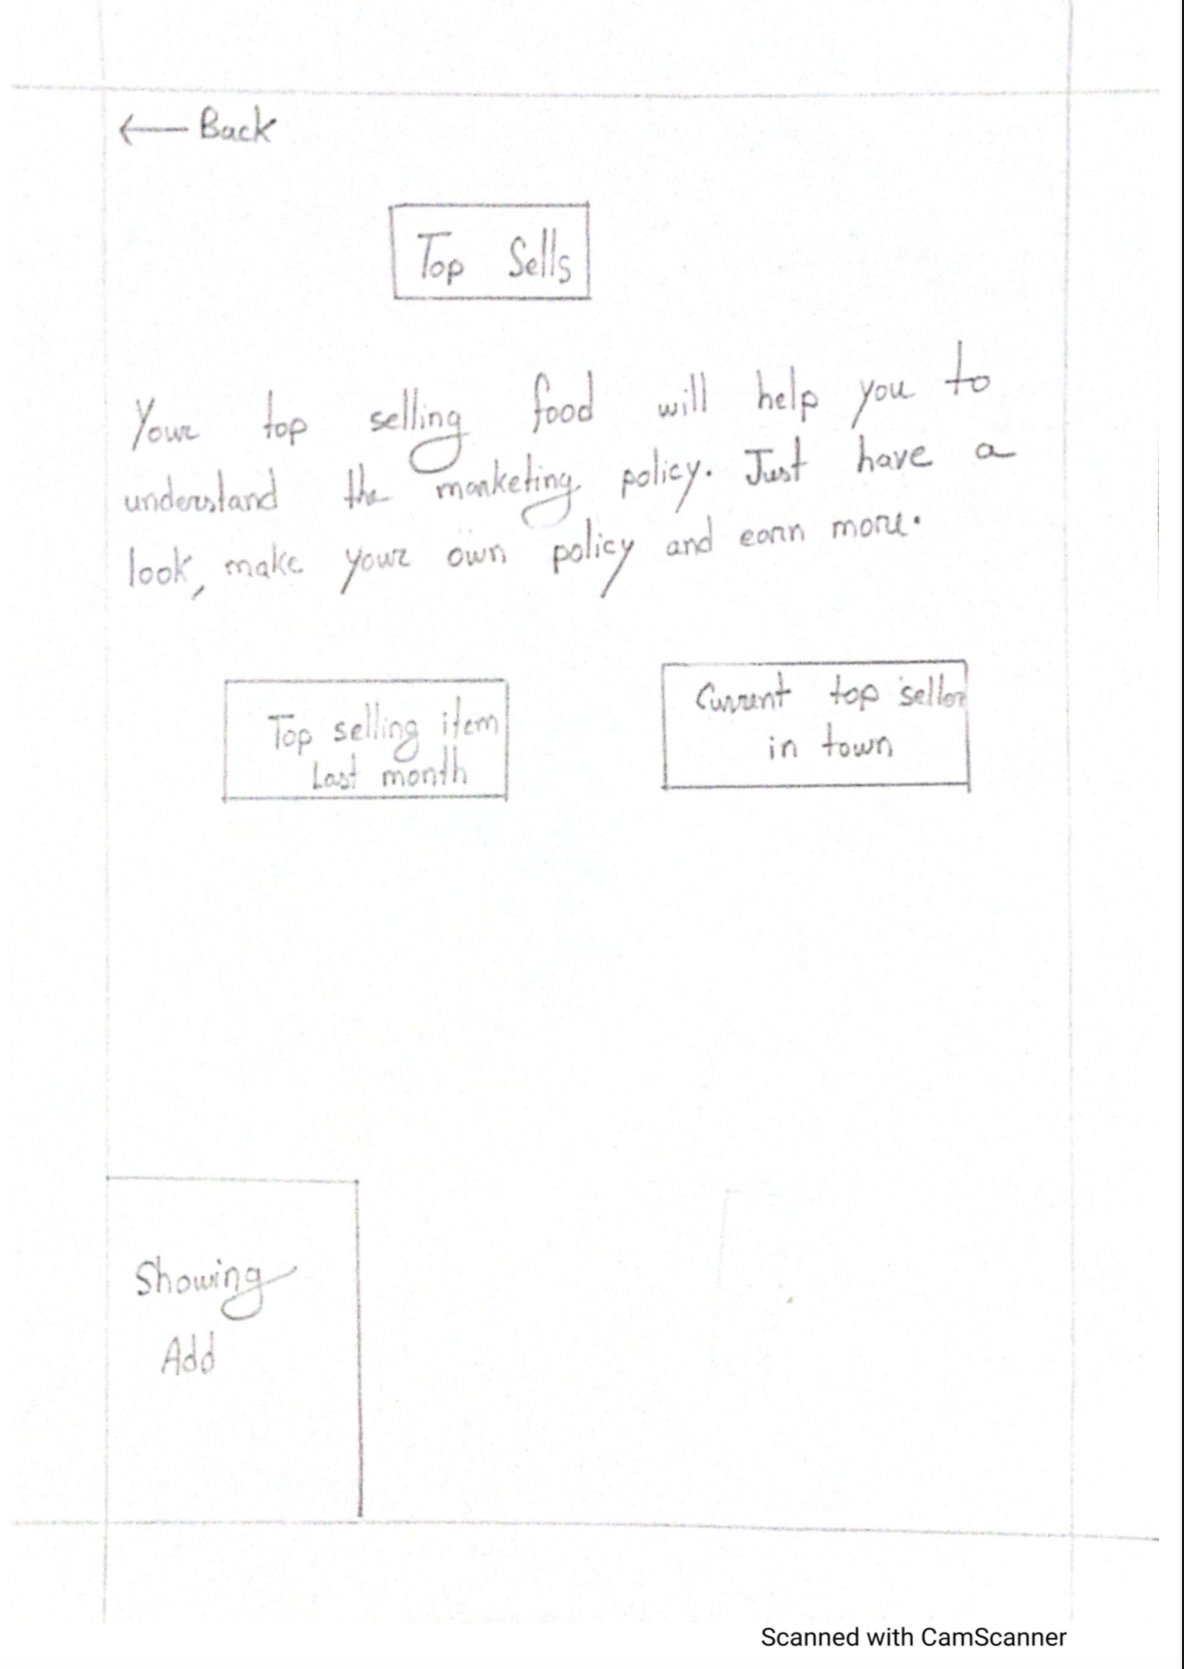 ← Back
Top Sells
Your top selling food will help you to
understand the marketing policy. Just have a
look, make your own policy and earn more.
Top selling item
Last month
Current top seller
in town
Showing
Add
Scanned with CamScanner